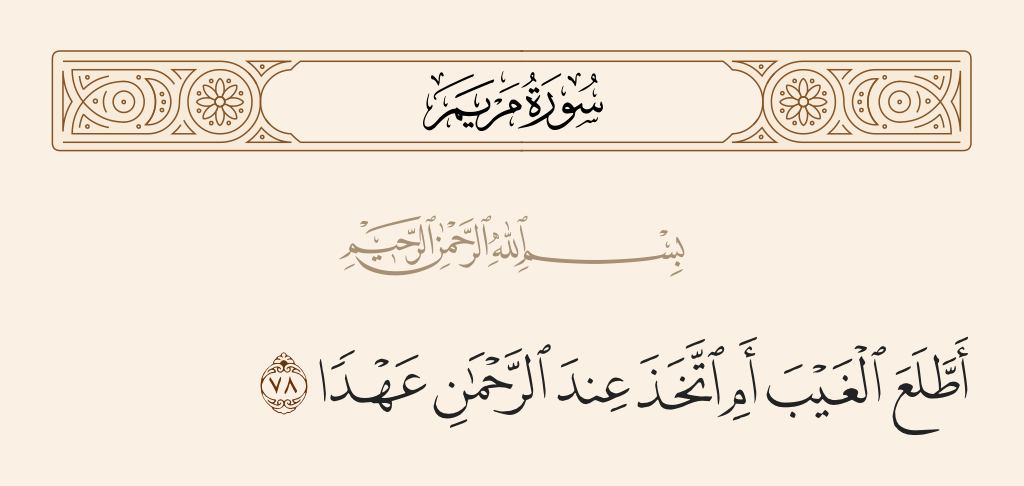 سُورَةُ مَرْيَمَ
بِسْمِ ٱللَّهِ ٱلرَّحْمَٰنِ ٱلرَّحِيمِ
أَطَّلَعَ ٱلْغَيْبَ أَمِ ٱتَّخَذَ عِندَ ٱلرَّحْمَٰنِ عَهْدًا ٧٨